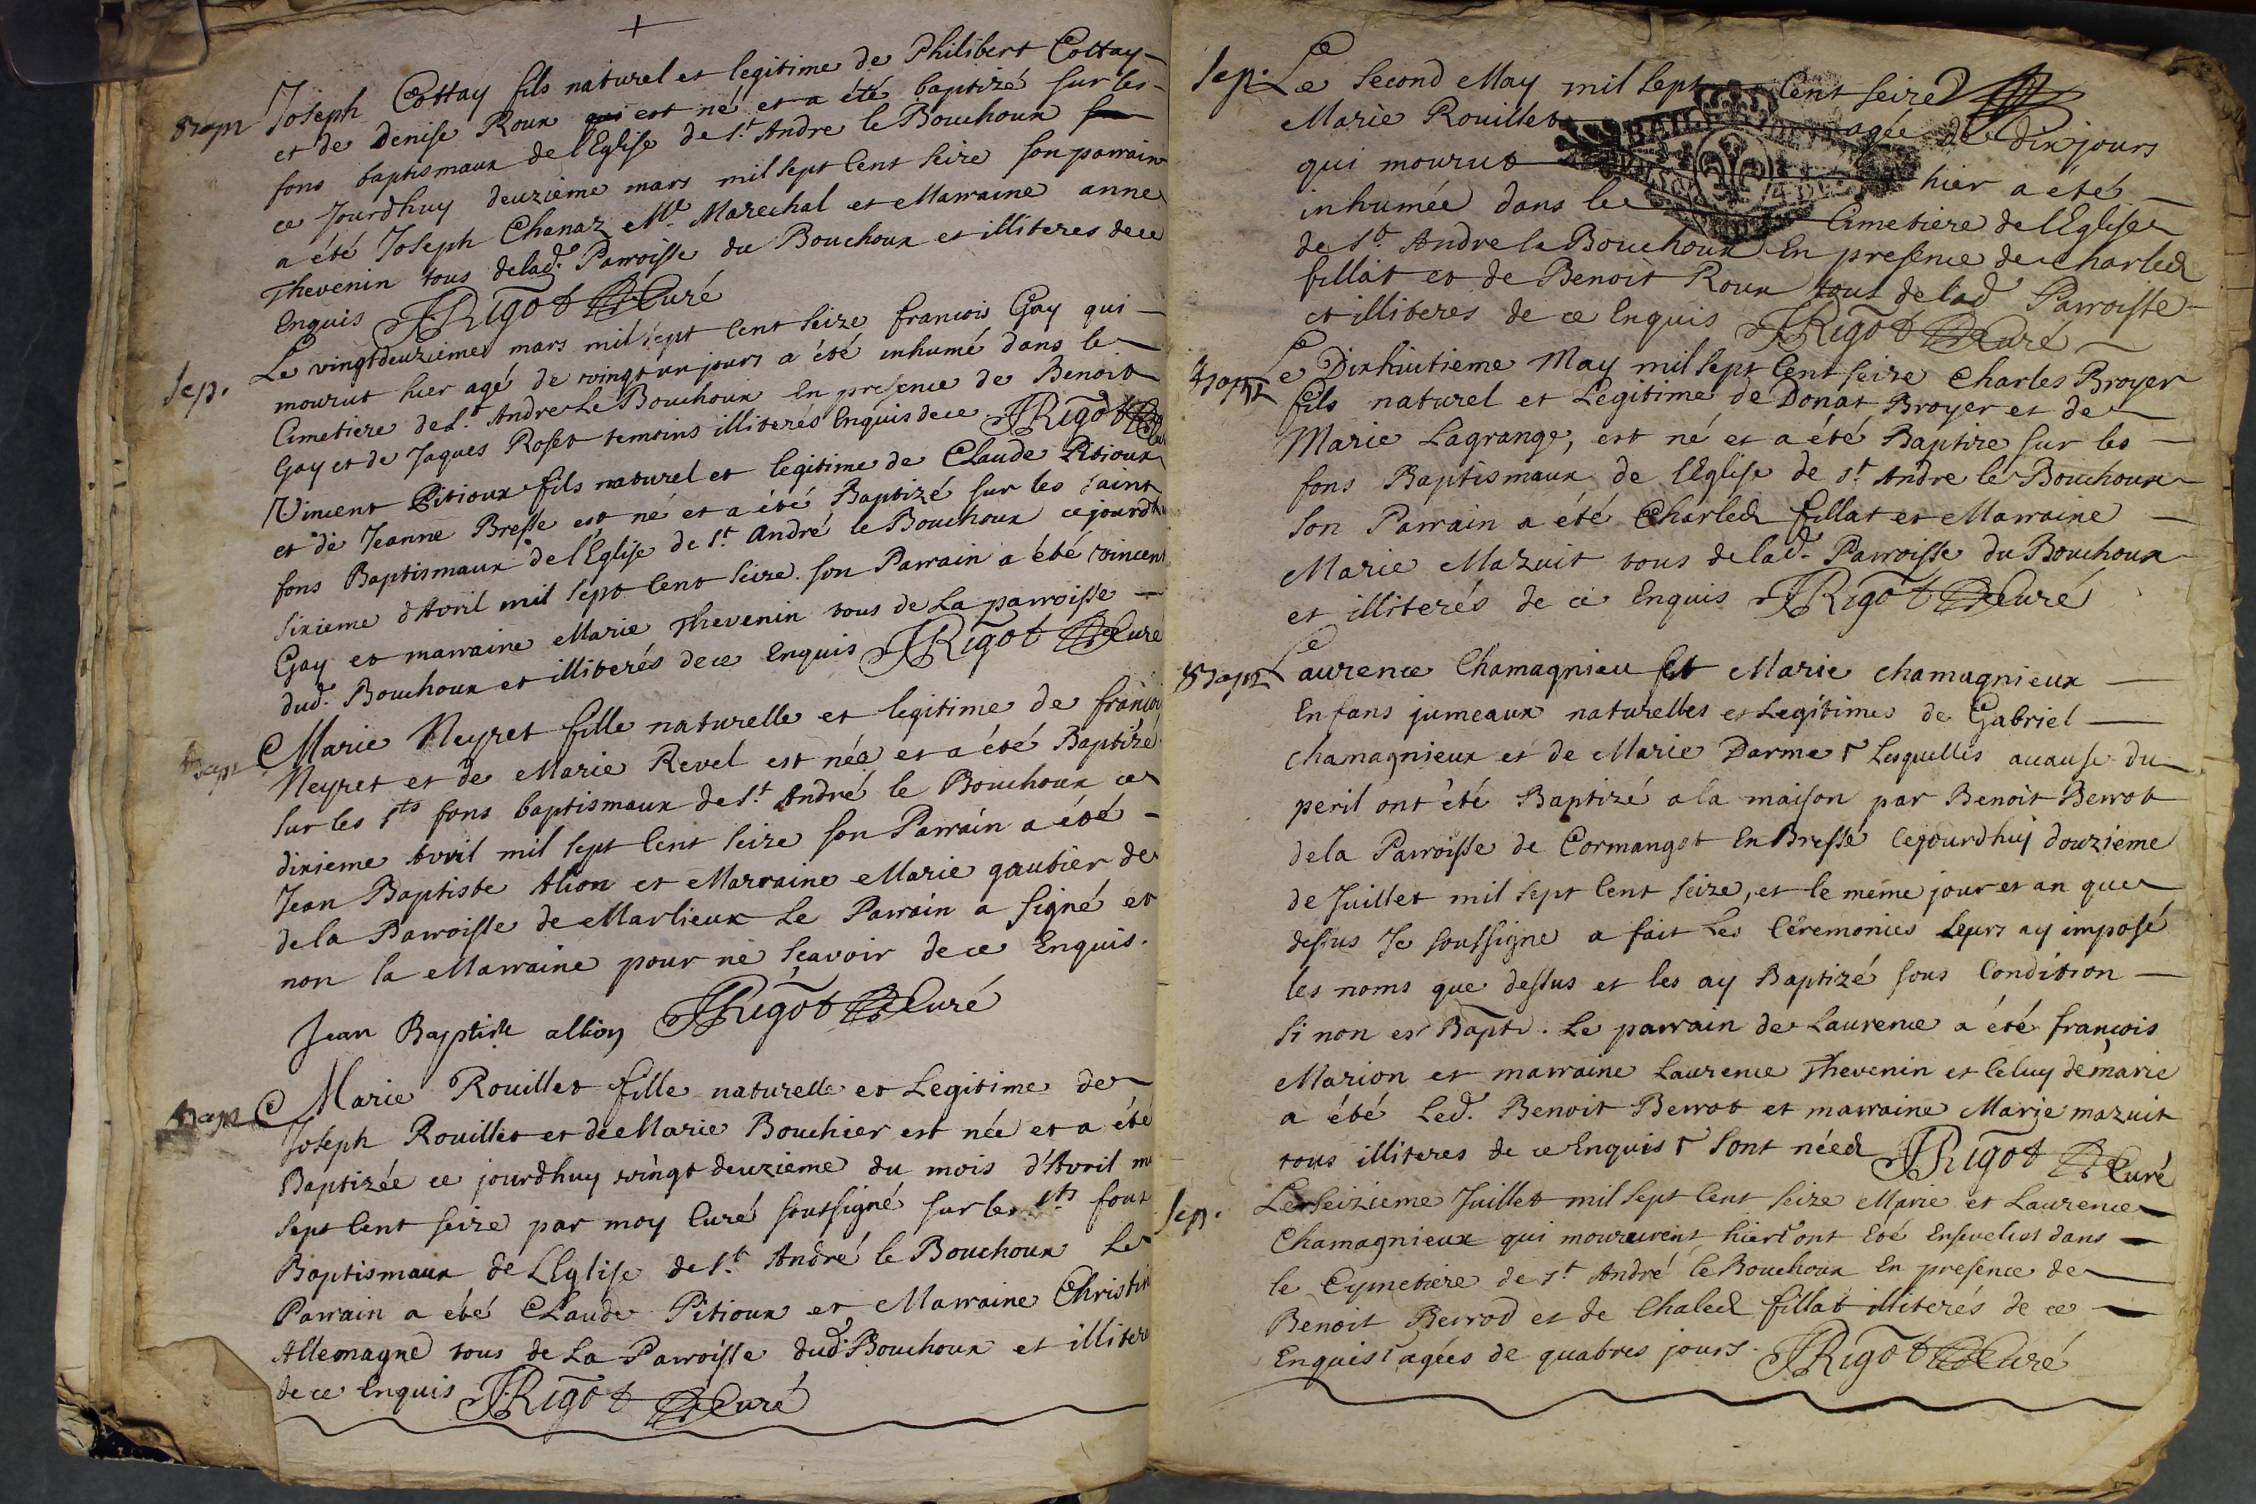 Bapt
Joseph Cottay fils naturel et legitime de Philibert Cottay
et de Denise Roux qui est né et a été baptizé sur les
fons baptismaux de l'Eglise de St. Andre le Bouchoux
ce Jourdhuy deuzieme mars mil sept Cent seize son parrain
a été Joseph Chanaz Me. Marechal et Marraine anne
Thevenin tous de lad. Parroisse du Bouchoux et illiteres de ce
Enquis JRigot Curé
Sep.
Le vingtdeuzieme mars mil sept Cent seize francois Gay qui
mourut hier agé de vingt un jours a été inhumé dans le
Cimetiere de St. Andre Le Bouchoux En presence de Benoit
Gay et de Jaques Roset temoins illiterés Enquis de ce JRigot
Vincent Pitioux fils naturel et legitime de Claude Pitioux
et de Jeanne Bresse est né et a été Baptizé sur les saint
fons Baptismaux de l'Eglise de St André le Bouchoux ce jourdh
sixieme d'Avril mil sept Cent seize son Parrain a été vincent
Gay et marraine Marie Thevenin tous de La parroisse
dud. Bouchoux et illiterés de ce Enquis JRigot Curé
Bapt
Marie Neyret fille naturelle et legitime de francoi
Neyret et de Marie Revel est née et a été Baptizé
sur les sts fons baptismaux de St. André le Bouchoux ce
dixieme Avril mil sept Cent seize son Parrain a été
Jean Baptiste Alion et Marraine Marie gautier de
de la Parroisse de Marlieux Le Parrain a signé et
non la Marraine pour ne sçavoir de ce Enquis.
Jean Baptiste allion JRigot Curé
Bapt
Marie Rouillet fille naturelle et Legitime de
Joseph Rouillet et de Marie Bouchier est née et a été
Baptizée ce jourdhuy vingt deuzieme du mois d'Avril m
sept Cent seize par moy Curé soussigné sur les sts fons
Baptismaux de L'Eglise de St. André le Bouchoux Le
Parrain a été Claude Pitioux et Marraine Christin
Allemagne tous de La Parroisse dud. Bouchoux et illitere
de ce Enquis JRigot Curé
Sep.
Le second May mil sept Cent seize
Marie Rouillet agée de dix jours
qui mourut hier a été
inhumée dans le Cimetiere de l'Eglise
de St. Andre le Bouchoux En presence de charles
fillat et de Benoit Roux tous de lad. Parroisse
et illiteres de ce Enquis JRigot Curé
Bapt
Le Dixhuitieme May mil sept Cent seize Charles Broyer
fils naturel et Legitime de Donat Broyer et de
Marie Lagrange, est né et a été Baptize sur les
fons Baptismaux de l'Eglise de St. Andre le Bouchoux
Son Parrain a été Charles fillat et Marraine
Marie Mazuit tous de lad. Parroisse du Bouchoux
et illiterés de ce Enquis JRigot Curé
Bapt
Laurence Chamagnieu et Marie chamagnieux
Enfans jumeaux naturelles et Legitimes de Gabriel
chamagnieux et de Marie Darme Lesquelles acause du
peril ont été Baptizé a la maison par Benoit Berrot
de la Parroisse de Cormangot En Bresse Cejourdhuy douzieme
de Juillet mil sept Cent seize, et le meme jour et an que
dessus Je soussigne a fait Les Céremonies leurs ay imposé
les noms que dessus et les ay Baptizé sous Condition
si non es Bapt. Le parrain de Laurence a été françois
Marion et marraine Laurence Thevenin et Celuy de marie
a été Led. Benoit Berrot et marraine Marie mazuit
tous illiteres de ce Enquis sont nées JRigot Curé
Sep.
Le seizieme Juillet mil sept Cent seize Marie et Laurence
Chamagnieux qui moururent hier ont Eté Ensevelies dans
le Cymetiere de St André le Bouchoux En presence de
Benoit Berrod et de Chales fillat illiterés de ce
Enquis agées de quatres jours. JRigot Curé